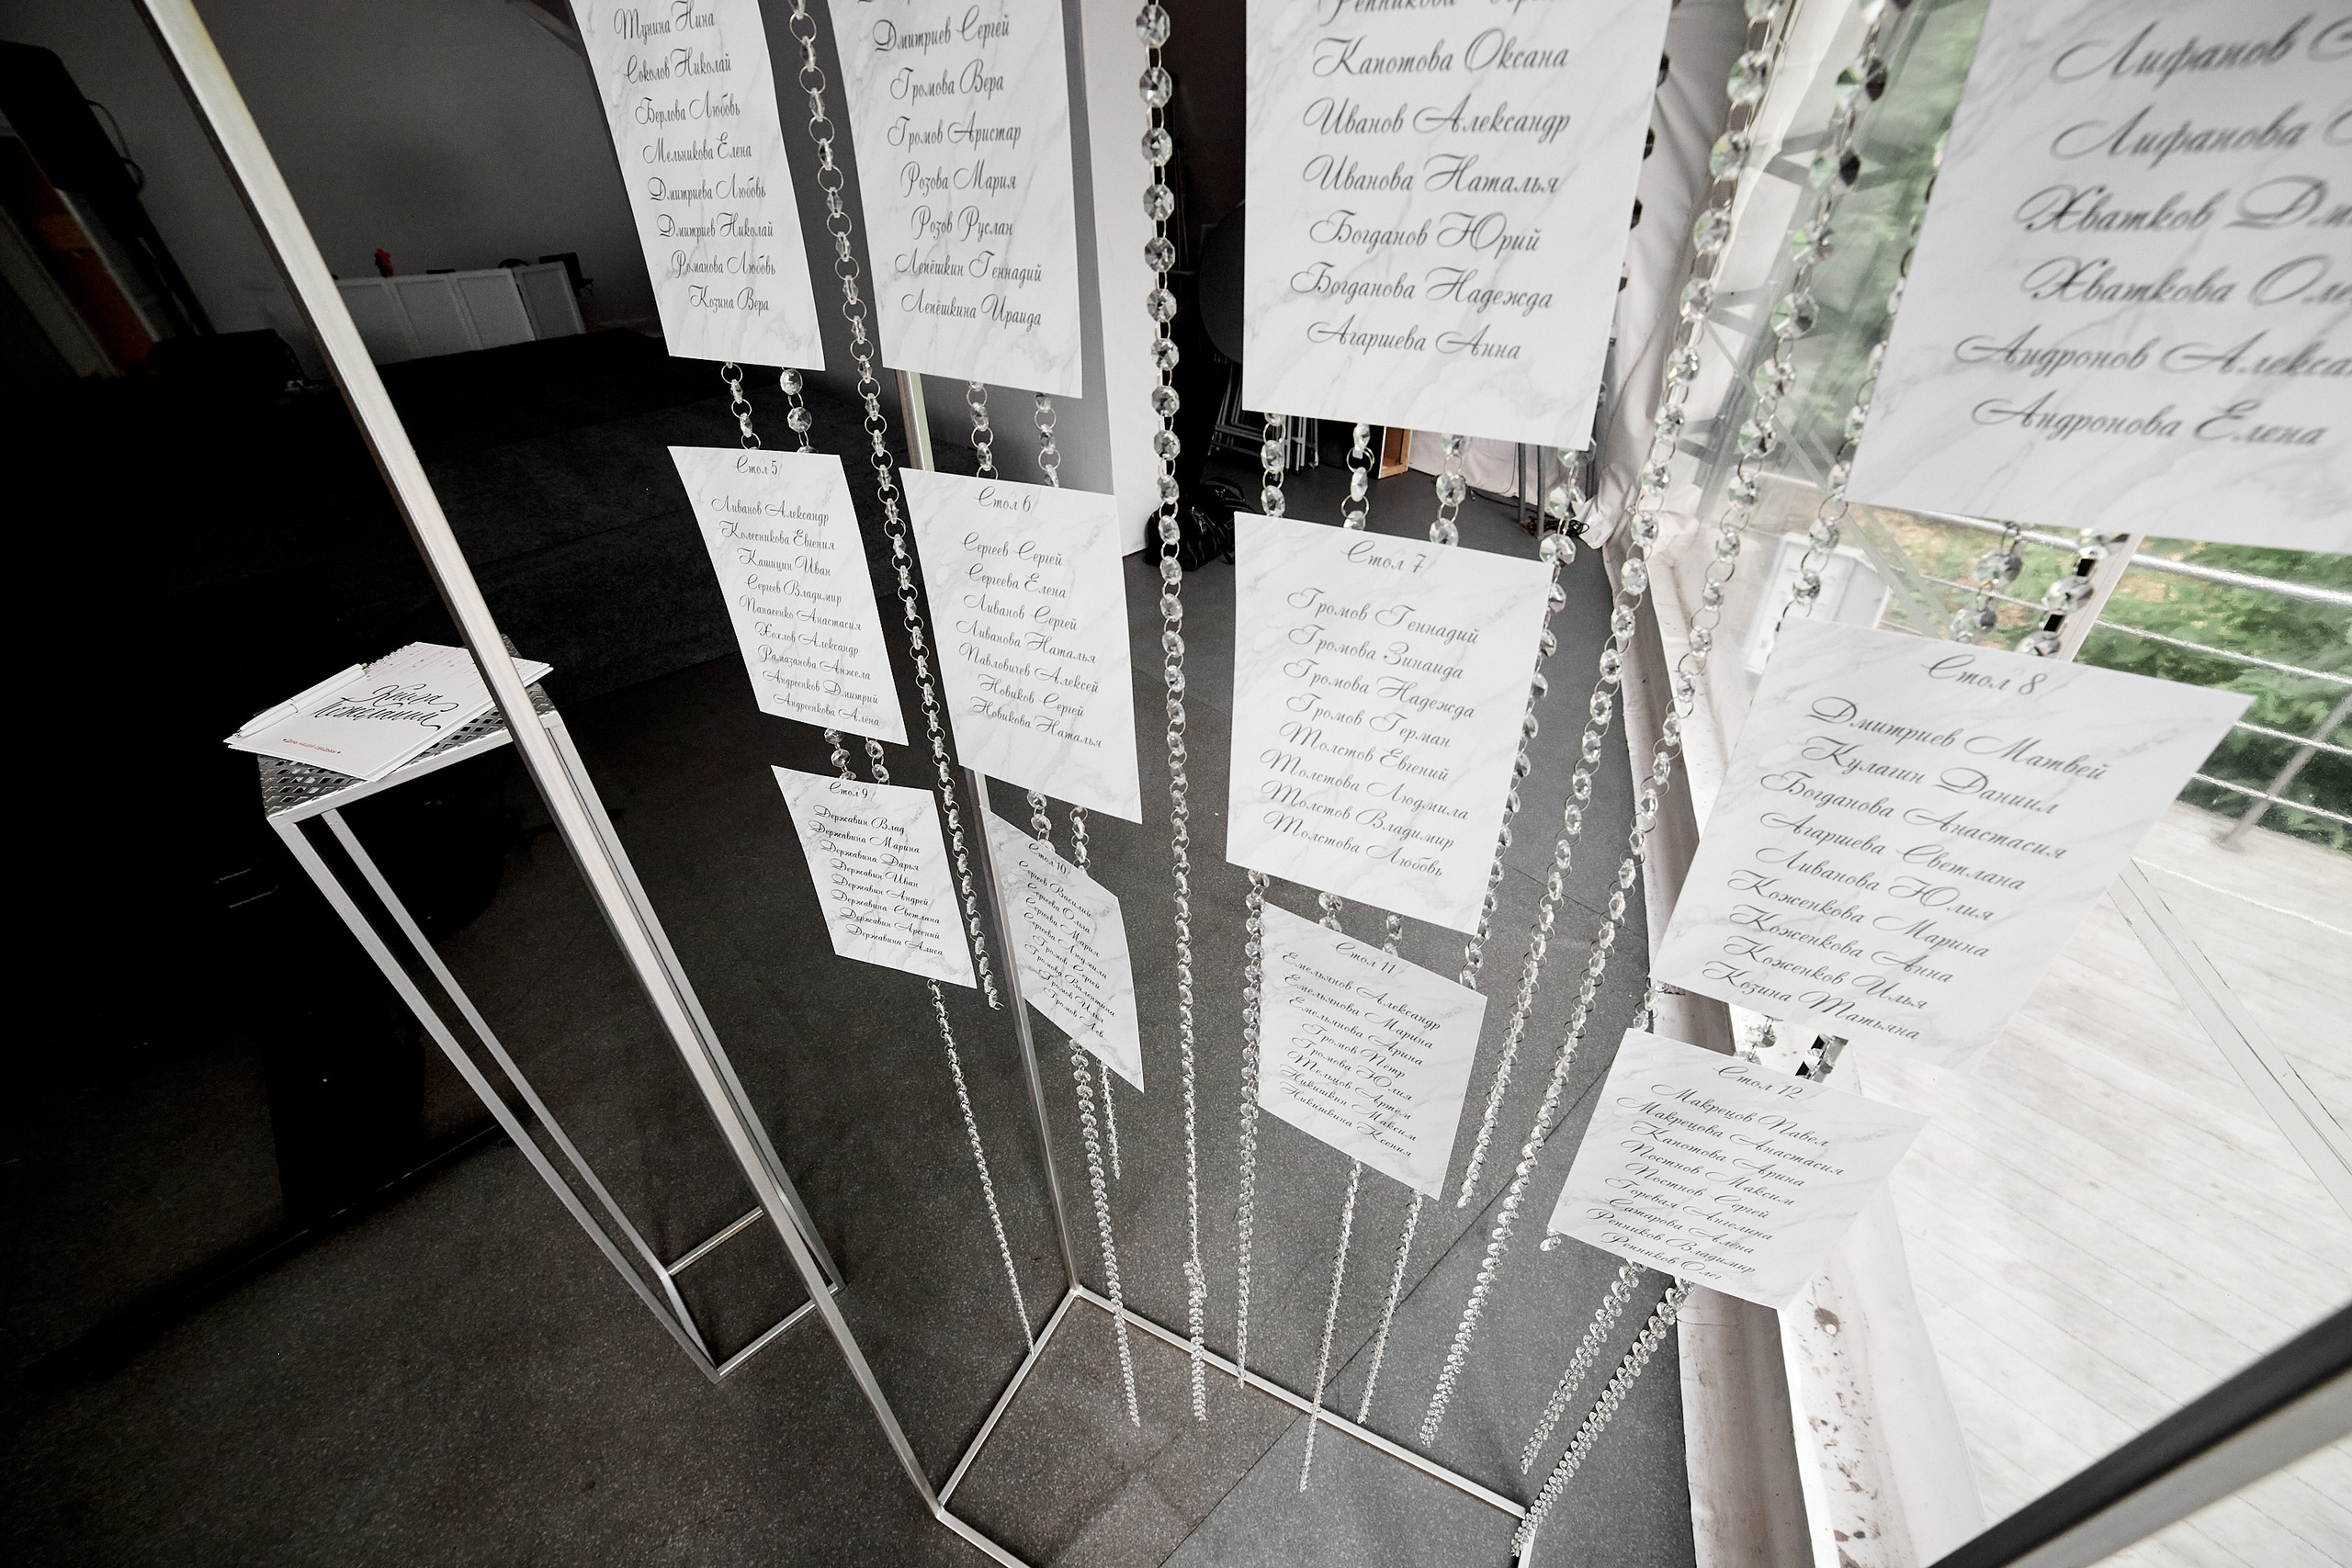 Мунина Нина
Соколов Николай
Берлова Любовь
Мельникова Елена
Дмитриева Любовь
Дмитриев Николай
Романова Любовь
Козина Вера
Дмитриев Сергей
Громова Вера
Громов Аристар
Розова Мария
Розов Руслан
Лепёшкин Геннадий
Лепёшкина Ираида
Репникова
Капотова Оксана
Иванов Александр
Иванова Наталья
Богданов Юрий
Богданова Надежда
Агаршева Анна
Лифанов
Лифанова
Хватков
Хваткова
Андронов
Андронова Елена
Стол 5
Ливанов Александр
Колесникова Евгения
Кашицин Иван
Сергеев Владимир
Панасенко Анастасия
Хохлов Александр
Рамазанова Анжела
Андреенков Дмитрий
Андреенкова Алёна
Стол 6
Сергеев Сергей
Сергеева Елена
Ливанов Сергей
Ливанова Наталья
Павловичев Алексей
Новиков Сергей
Новикова Наталья
Стол 7
Громов Геннадий
Громова Зинаида
Громова Надежда
Громов Герман
Толстов Евгений
Толстова Людмила
Толстов Владимир
Толстова Любовь
Стол 8
Дмитриев Матвей
Кулагин Даниил
Богданова Анастасия
Агаршева Светлана
Ливанова Юлия
Коженкова Марина
Коженкова Анна
Коженков Илья
Козина Татьяна
Книга
пожеланий
Стол 9
Державин Влад
Державина Марина
Державина Дарья
Державин Иван
Державин Андрей
Державина Светлана
Державин Арсений
Державина Алиса
Стол 10
Сергеев Василий
Сергеева Ольга
Сергеева Мария
Сергеева Людмила
Громов Сергей
Громова Валентина
Громов Илья
Громов
Стол 11
Емельянов Александр
Емельянова Марина
Емельянова Арина
Громов Пётр
Громова Юлия
Тельцов Артём
Никишкин Максим
Никишкина Ксения
Стол 12
Макрецов Павел
Макрецова Анастасия
Капотова Арина
Постнов Максим
Постнов Сергей
Горевая Ангелина
Сатарова Алёна
Репников Владимир
Репников Олег